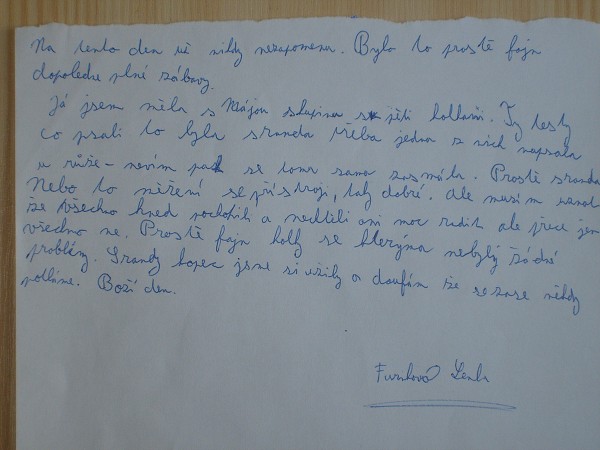 Na tento den už nikdy nezapomenu. Bylo to prostě fajn
dopoledne plné zábavy.
Já jsem měla s Májou skupinu s pěti holkami. Ty testy
co psali to byla sranda třeba jedna z nich napsala
u růže - nevím pak se tomu sama zasmála. Prostě sranda
Nebo to měření s přístroji, taky dobré. Ale musím uznat
že všechno hned pochopili a nechtěli ani moc radit ale přece jen
všechno ne. Prostě fajn holky se kterýma nebyly žádné
problémy. Srandy kopec jsme si užily a doufám že se zase někdy
potkáme. Boží den.
Lenka